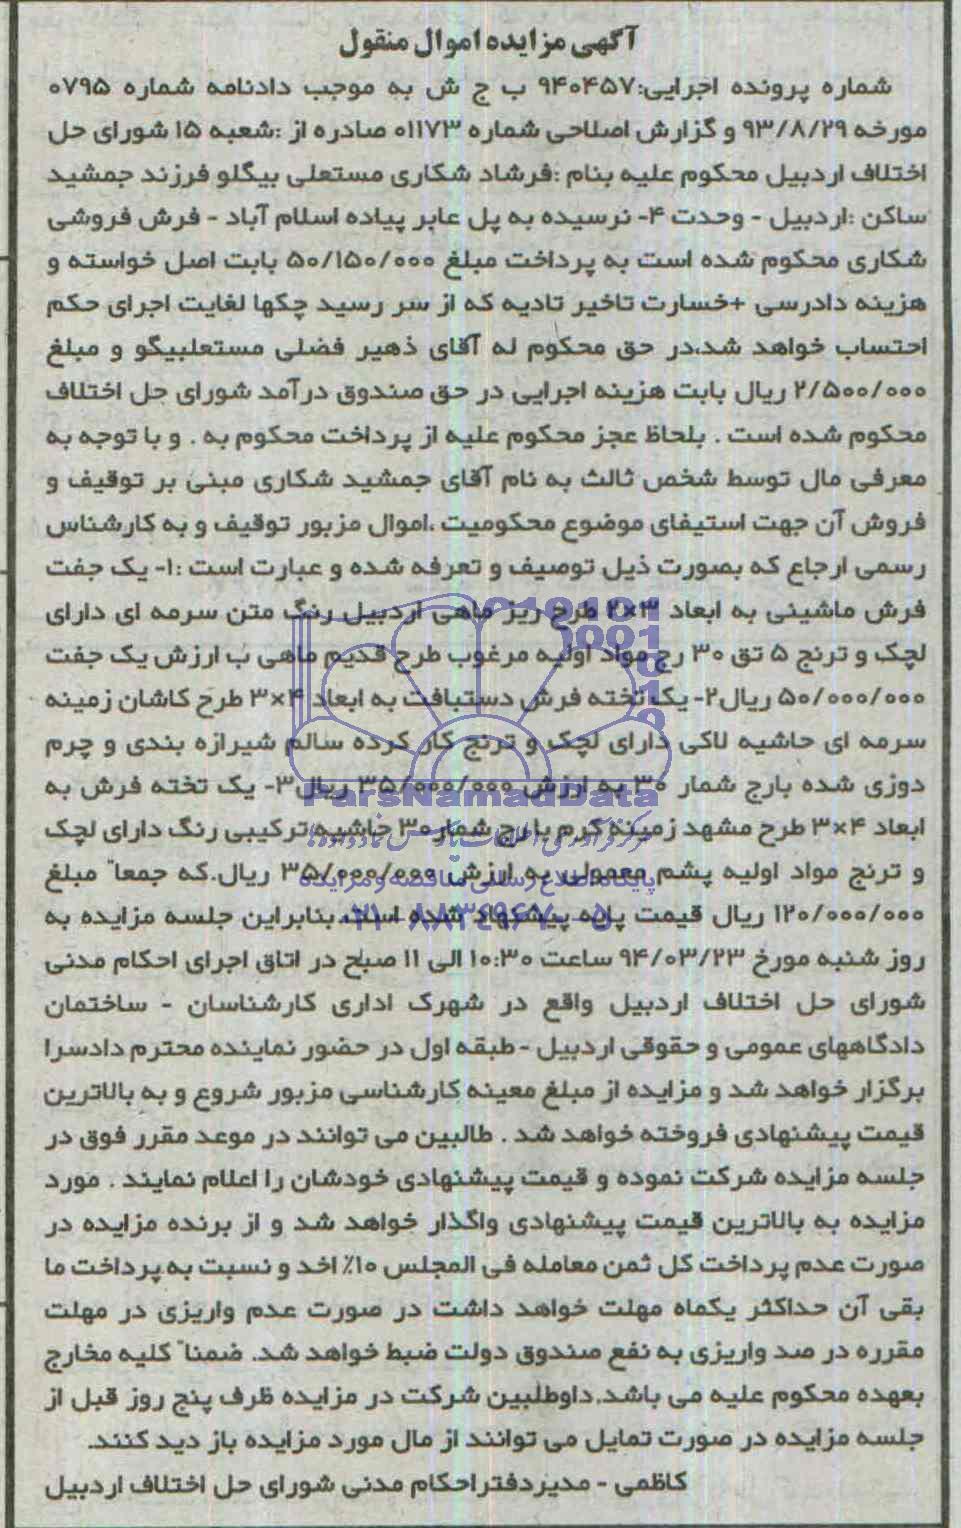 آگهی مزایده اموال منقول
شماره پرونده اجرایی:۹۴۰۴۵۷ ب ج ش به موجب دادنامه شماره ۰۷۹۵
مورخه ۹۳/۸/۲۹ و گزارش اصلاحی شماره ۰۱۱۷۳ صادره از :شعبه ۱۵ شورای حل
اختلاف اردبیل محکوم علیه بنام :فرشاد شکاری مستعلی بیگلو فرزند جمشید
ساکن :اردبیل - وحدت ۴- نرسیده به پل عابر پیاده اسلام آباد - فرش فروشی
شکاری محکوم شده است به پرداخت مبلغ ۵۰/۱۵۰/۰۰۰ بابت اصل خواسته و
هزینه دادرسی +خسارت تاخیر تادیه که از سر رسید چکها لغایت اجرای حکم
احتساب خواهد شد،در حق محکوم له آقای ذهیر فضلی مستعلبیگو و مبلغ
۲/۵۰۰/۰۰۰ ریال بابت هزینه اجرایی در حق صندوق درآمد شورای حل اختلاف
محکوم شده است . بلحاظ عجز محکوم علیه از پرداخت محکوم به . و با توجه به
معرفی مال توسط شخص ثالث به نام آقای جمشید شکاری مبنی بر توقیف و
فروش آن جهت استیفای موضوع محکومیت ،اموال مزبور توقیف و به کارشناس
رسمی ارجاع که بصورت ذیل توصیف و تعرفه شده و عبارت است :۱- یک جفت
فرش ماشینی به ابعاد ۳×۲ طرح ریز ماهی اردبیل رنگ متن سرمه ای دارای
لچک و ترنج ۵ تق ۳۰ رج مواد اولیه مرغوب طرح قدیم ماهی ب ارزش یک جفت
۵۰/۰۰۰/۰۰۰ ریال۲- یک تخته فرش دستبافت به ابعاد ۴×۳ طرح کاشان زمینه
سرمه ای حاشیه لاکی دارای لچک و ترنج کار کرده سالم شیرازه بندی و چرم
دوزی شده بارج شمار ۳۰ به ارزش ۳۵/۰۰۰/۰۰۰ ریال۳- یک تخته فرش به
ParsNamadData
ابعاد ۴×۳ طرح مشهد زمینه کرم با رج شمار۳۰ حاشیه ترکیبی رنگ دارای لچک
و ترنج مواد اولیه پشم معمولی به ارزش ۳۵/۰۰۰/۰۰۰ ریال.که جمعا" مبلغ
پایگاه اطلاع رسانی مناقصه و مزایده
۱۲۰/۰۰۰/۰۰۰ ریال قیمت پایه پیشنهاد شده است.بنابراین جلسه مزایده به
۰۲۱-۸۸۳۴۹۶۷۰-۵
روز شنبه مورخ ۹۴/۰۳/۲۳ ساعت ۱۰:۳۰ الی ۱۱ صبح در اتاق اجرای احکام مدنی
شورای حل اختلاف اردبیل واقع در شهرک اداری کارشناسان - ساختمان
دادگاههای عمومی و حقوقی اردبیل -طبقه اول در حضور نماینده محترم دادسرا
برگزار خواهد شد و مزایده از مبلغ معینه کارشناسی مزبور شروع و به بالاترین
قیمت پیشنهادی فروخته خواهد شد . طالبین می توانند در موعد مقرر فوق در
جلسه مزایده شرکت نموده و قیمت پیشنهادی خودشان را اعلام نمایند . مورد
مزایده به بالاترین قیمت پیشنهادی واگذار خواهد شد و از برنده مزایده در
صورت عدم پرداخت کل ثمن معامله فی المجلس ۱۰٪ اخد و نسبت به پرداخت ما
بقی آن حداکثر یکماه مهلت خواهد داشت در صورت عدم واریزی در مهلت
مقرره در صد واریزی به نفع صندوق دولت ضبط خواهد شد. ضمنا" کلیه مخارج
بعهده محکوم علیه می باشد.داوطلبین شرکت در مزایده ظرف پنج روز قبل از
جلسه مزایده در صورت تمایل می توانند از مال مورد مزایده باز دید کنند.
کاظمی - مدیردفتراحکام مدنی شورای حل اختلاف اردبیل